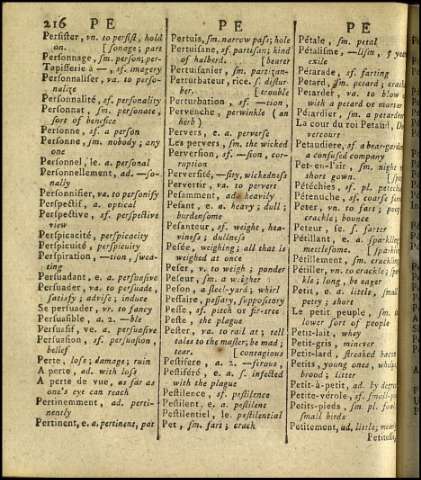 216 P E
P E
P E
Persister, vn. to persist, hold
on. [sonage; part
Personnage, sm. person, per-
Tapisserie à —, sf. imagery
Personnaliser, va. to perso-
nalize
Personnalité, sf. personality
Personnat, sm. personate,
sort of benefice
Personne, sf. a person
Personne, sm. nobody; any
one
Personnel, le. a. personal
Personnellement, ad. —so-
nally
Personnifier, va. to personify
Perspectif, a. optical
Perspective, sf. perspective
view
Perspicacité, perspicacity
Perspicuité, perspicuity
Perspiration, —tion, swea-
ting
Persuadant, e. a. persuasive
Persuader, va. to persuade,
satisfy; advise; induce
Se persuader, vr. to fancy
Persuasible, a. 2. —ble
Persuasif, ve. a. persuasive
Persuasion, sf. persuasion,
belief
Perte, loss; damage; ruin
A perte, ad. with loss
A perte de vue, as far as
one's eye can reach
Pertinemment, ad. perti-
nently
Pertinent, e. a. pertinent, pat
Pertuis, sm. narrow pass; hole
Pertuisane, sf. partisan; kind
of halberd. [bearer
Pertuisanier, sm. partizan-
Perturbateur, rice. s. distur-
ber. [trouble
Perturbation, sf. —tion,
Pervenche, periwinkle (an
herb)
Pervers, e. a. perverse
Les pervers, sm. the wicked
Perversion, sf. —sion, cor-
ruption
Perversité, —sity, wickedness
Pervertir, va. to pervert
Pesamment, ad. heavily
Pesant, e. a. heavy; dull;
burdensome
Pesanteur, sf. weight, hea-
viness; dullness
Pesée, weighing; all that is
weighed at once
Peser, v. to weigh; ponder
Peseur, sm. a weigher
Peson, a steel-yard; whirl
Pessaire, pessary, suppository
Pesse, sf. pitch or fir-tree
Peste, the plague
Pester, va. to rail at; tell
tales to the master; be mad;
tear. [contagious
Pestifere, a. 2. —ferous,
Pestiféré, e. a. s. infected
with the plague
Pestilence, sf. pestilence
Pestilent, e. a. pestilent
Pestilentiel, le. pestilential
Pet, sm. fart; crack
Pétale, sm. petal
Pétalisme, —lism, 5 years
exile
Pétarade, sf. farting
Pétard, sm. petard; crack
Pétarder, va. to blow
with a petard or mortar
Pétardier, sm. a petarder
La cour du roi Petaud, Do
vercourt
Petaudiere, sf. a bear-garden
a confused company
Pet-en-l'air, sm. night
short gown.
Pétéchies, sf. pl. petechi
Pétenuche, sf. coarse
Peter, vn. to fart;
crackle; bounce
Peteur, se. s. farter
Pétillant, e. a. sparkling
mettlesome.
Pétillement, sm. crackling
Pétiller, vn. to crackle; spar
kle; long, be eager
Petit, e. a. little, small
petty; short
Le petit peuple, sm.
lower sort of people
Petit-lait, whay
Petit-gris, miniver
Petit-lard, streaked bacon
Petits, young ones, whelps
brood; litter
Petit-à-petit, ad. by degrees
Petite-vérole, sf. small-
Petits-pieds, sm. pl.
small birds
Petitement, ad. little;
Petitesse